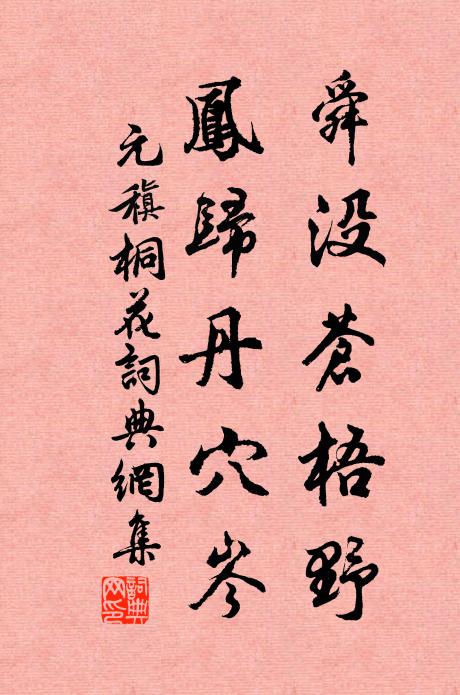 舜沒蒼梧野
鳳歸丹穴岑
元稹桐花詞典網集
詞典網印